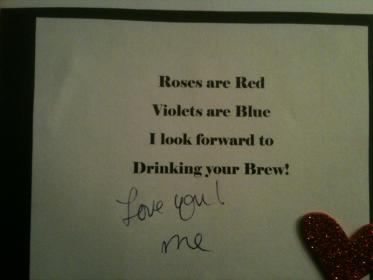 Roses are Red
Violets are Blue
I look forward to
Drinking your Brew!
Love you!
me